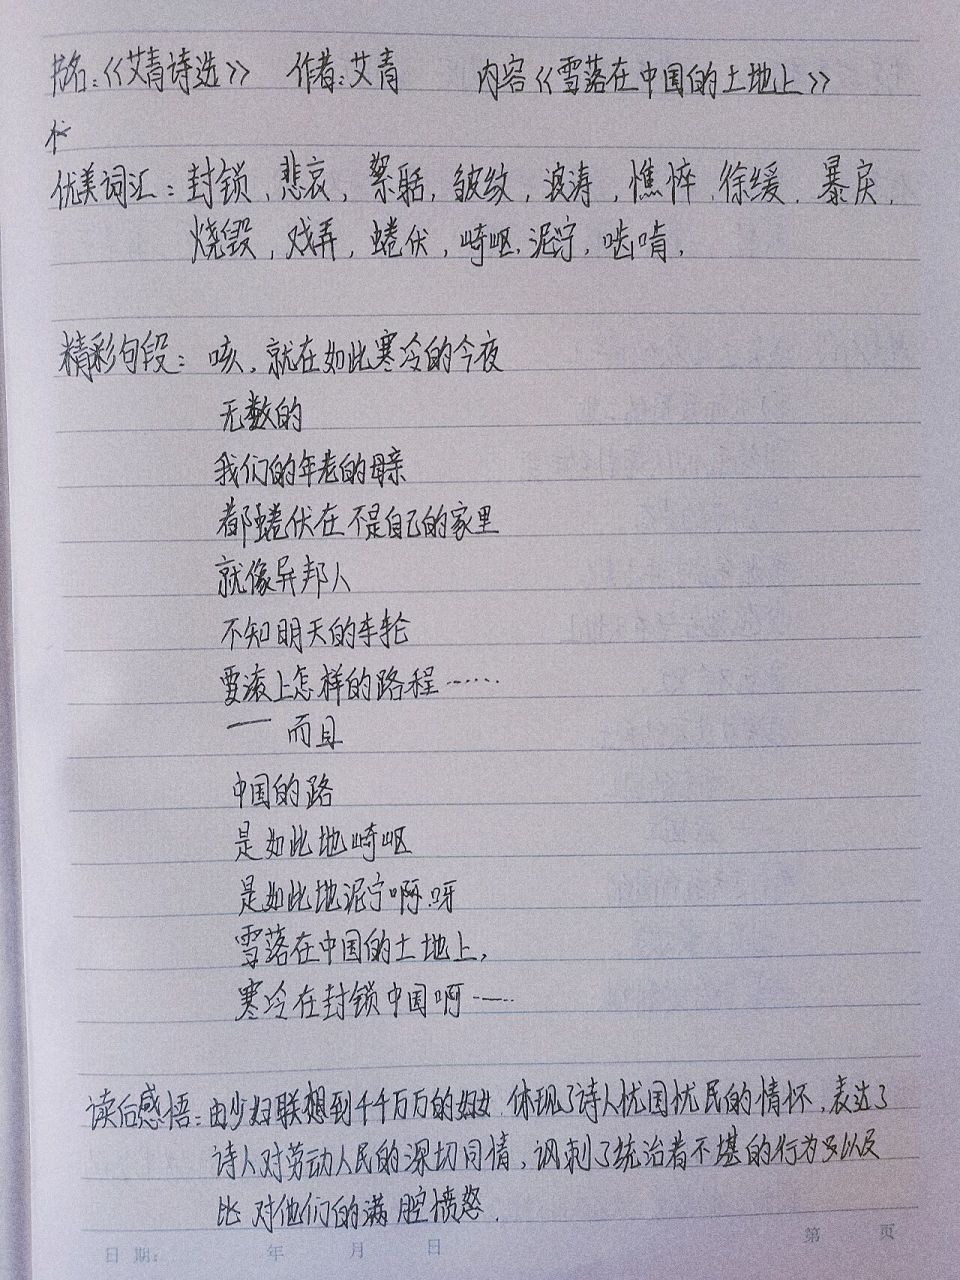 书名：《艾青诗选》 作者：艾青 内容《雪落在中国的土地上》
优美词汇：封锁、悲哀，聒，皱纹，波涛，憔悴、徐缓、暴戾、
烧毁，戏弄，蜷伏，崎岖，泥泞，啮啃，
精彩句段：咳，就在如此寒冷的今夜
无数的
我们的年老的母亲
都蜷伏在不是自己的家里
就像异邦人
不知明天的车轮
要滚上怎样的路程……
——而且
中国的路
是如此地崎岖
是如此地泥泞啊呀
雪落在中国的土地上，
寒冷在封锁中国啊……
读后感悟：由少妇联想到千千万万的妇女、体现了诗人忧国忧民的情怀，表达了
诗人对劳动人民的深切同情，讽刺了统治者不堪的行为以及
对他们的满腔愤怒.
日期： 年 月 日
第 页